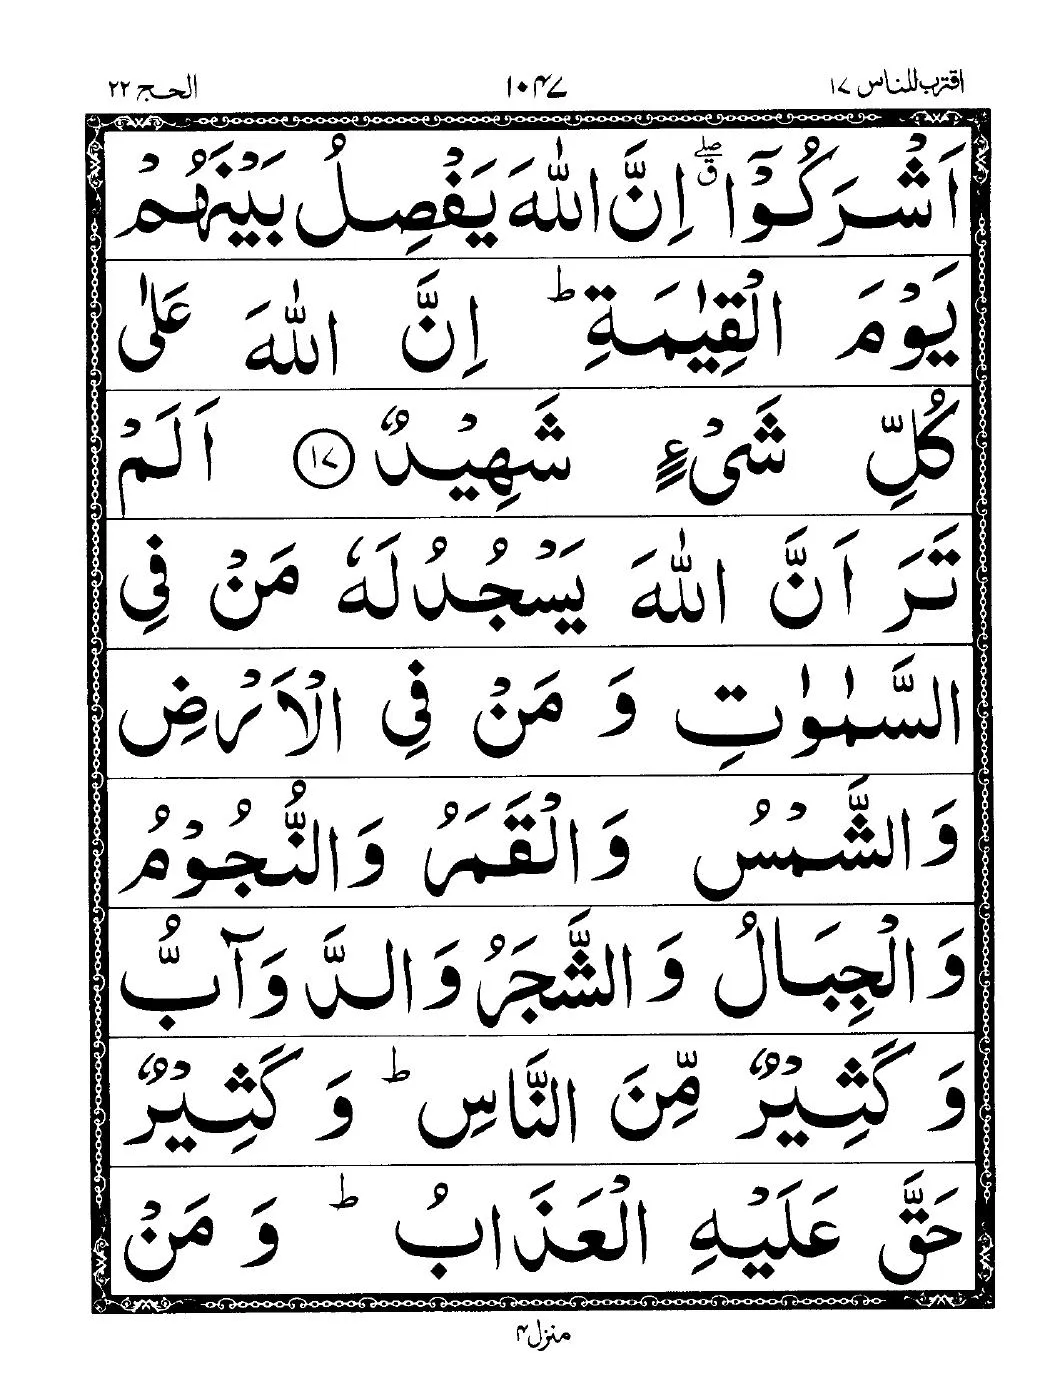 اقترب للناس ١٧
١٠٤٧
الحج ٢٢
اَشْرَكُوْۤا ۖۗ اِنَّ اللّٰهَ يَفْصِلُ بَيْنَهُمْ
يَوْمَ الْقِيٰمَةِ ؕ اِنَّ اللّٰهَ عَلٰى
كُلِّ شَىْءٍ شَهِيْدٌ ١٧ اَلَمْ
تَرَ اَنَّ اللّٰهَ يَسْجُدُ لَهٗ مَنْ فِى
السَّمٰوٰتِ وَ مَنْ فِى الْاَرْضِ
وَالشَّمْسُ وَالْقَمَرُ وَالنُّجُوْمُ
وَالْجِبَالُ وَالشَّجَرُ وَالدَّوَآبُّ
وَ كَثِيْرٌ مِّنَ النَّاسِ ؕ وَ كَثِيْرٌ
حَقَّ عَلَيْهِ الْعَذَابُ ؕ وَ مَنْ
منزل ٤